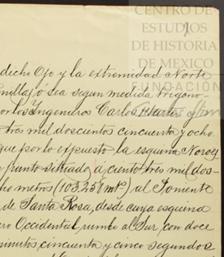 CENTRO DE
ESTUDIOS
DE HISTORIA
DE MEXICO
FUNDACIÓN
dicho Ojo y la extremidad Norte
segun medida trigono
por los Ingenieros Carlos
tres mil doscientos cincuenta y ocho
que por lo expuesto la esquina Noroes
punto situado a ciento tres mil dos-
cho metros (103,258 mts) al Poniente
de Santa Rosa, desde cuya esquina
Occidental, rumbo al Sur, con doce
minutos, cincuenta y cinco segundos